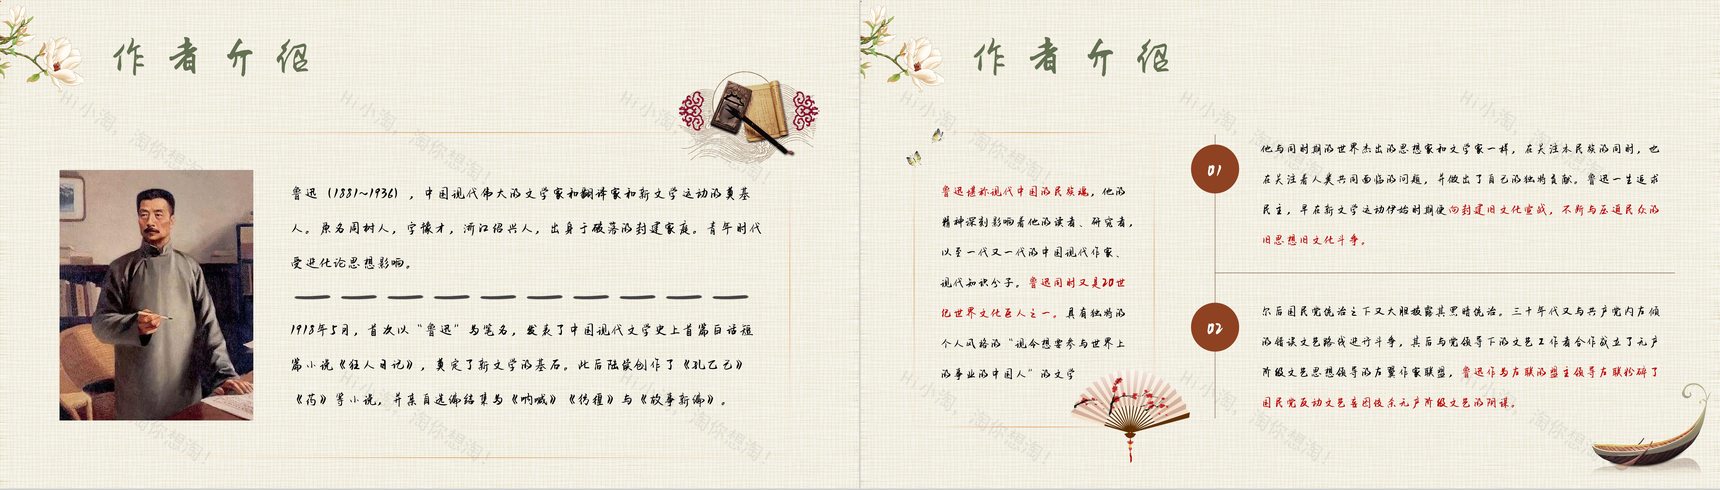 作者介绍
鲁迅（1881~1936），中国现代伟大的文学家和翻译家和新文学运动的奠基
人。原名周树人，字豫才，浙江绍兴人，出身于破落的封建家庭。青年时代
受进化论思想影响。
1918年5月，首次以“鲁迅”为笔名，发表了中国现代文学史上首篇白话短
篇小说《狂人日记》，奠定了新文学的基石。此后陆续创作了《孔乙己》
《药》等小说，并亲自选编结集为《呐喊》《彷徨》与《故事新编》。
作者介绍
鲁迅堪称现代中国的民族魂，他的
精神深刻影响着他的读者、研究者，
以至一代又一代的中国现代作家、
现代知识分子。鲁迅同时又是20世
纪世界文化巨人之一。具有独特的
个人风格的“现今想要参与世界上
的事业的中国人”的文学
01
他与同时期的世界杰出的思想家和文学家一样，在关注本民族的同时，也
在关注着人类共同面临的问题，并做出了自己的独特贡献。鲁迅一生追求
民主，早在新文学运动伊始时期便向封建旧文化宣战，不断与压迫民众的
旧思想旧文化斗争。
02
尔后国民党统治之下又大胆披露其黑暗统治。三十年代又与共产党内左倾
的错误文艺路线进行斗争，其后与党领导下的文艺工作者合作成立了无产
阶级文艺思想领导的左翼作家联盟，鲁迅作为左联的盟主领导左联粉碎了
国民党反动文艺妄图扼杀无产阶级文艺的阴谋。
Hi小淘，淘你想淘！
Hi小淘，淘你想淘！
Hi小淘，淘你想淘！
Hi小淘，淘你想淘！
Hi小淘，淘你想淘！
Hi小淘，淘你想淘！